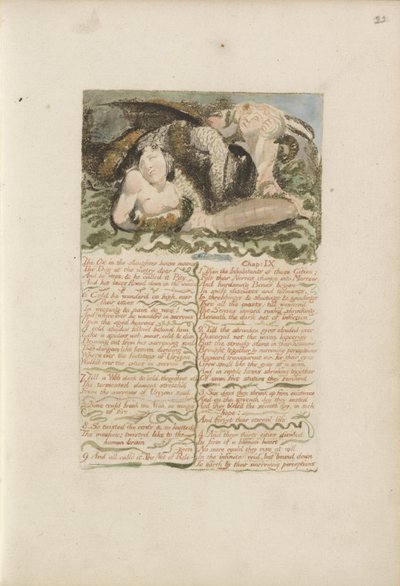 22
The Ox in the slaughter house moans
The Dog at the wintry door
And he wept, & he called it Pity
And his tears flowed down on the winds
6. Cold he wander'd on high, over
their cities
In weeping & pain & woe!
And where-ever he wanderd in sorrows
Upon the aged heavens
A cold shadow follow'd behind him
Like a spiders web, moist, cold, & dim
Drawing out from his sorrowing soul
The dungeon-like heaven dividing
Where ever the footsteps of Urizen
Walk'd over the cities in sorrow.
7. Till a Web dark & cold, throughout all
The tormented element stretch'd
From the sorrows of Urizens soul
None could break the Web, no wings
of fire.
8. So twisted the cords, & so knotted
The meshes: twisted like to the
human brain
9. And all calld it, The Net of Reli-
gion
Chap: IX
1. Then the Inhabitants of those Cities:
Felt their Nerves change into Marrow
And hardening Bones began
In swift diseases and torments,
In throbbings & shootings & grindings
Thro' all the coasts; till weaken'd
The Senses inward rush'd shrinking,
Beneath the dark net of infection.
2. Till the shrunken eyes clouded over
Discernd not the woven hipocrisy
But the streaky slime in their heavens
Brought together by narrowing perceptions
Appeard transparent air; for their eyes
Grew small like the eyes of a man
And in reptile forms shrinking together
Of seven feet stature they remaind
3. Six days they shrunk up from existence
And on the seventh day they rested
And they bless'd the seventh day, in sick
hope:
And forgot their eternal life
4. And their thirty cities divided
In form of a human heart
No more could they rise at will
In the infinite void, but bound down
To earth by their narrowing perceptions